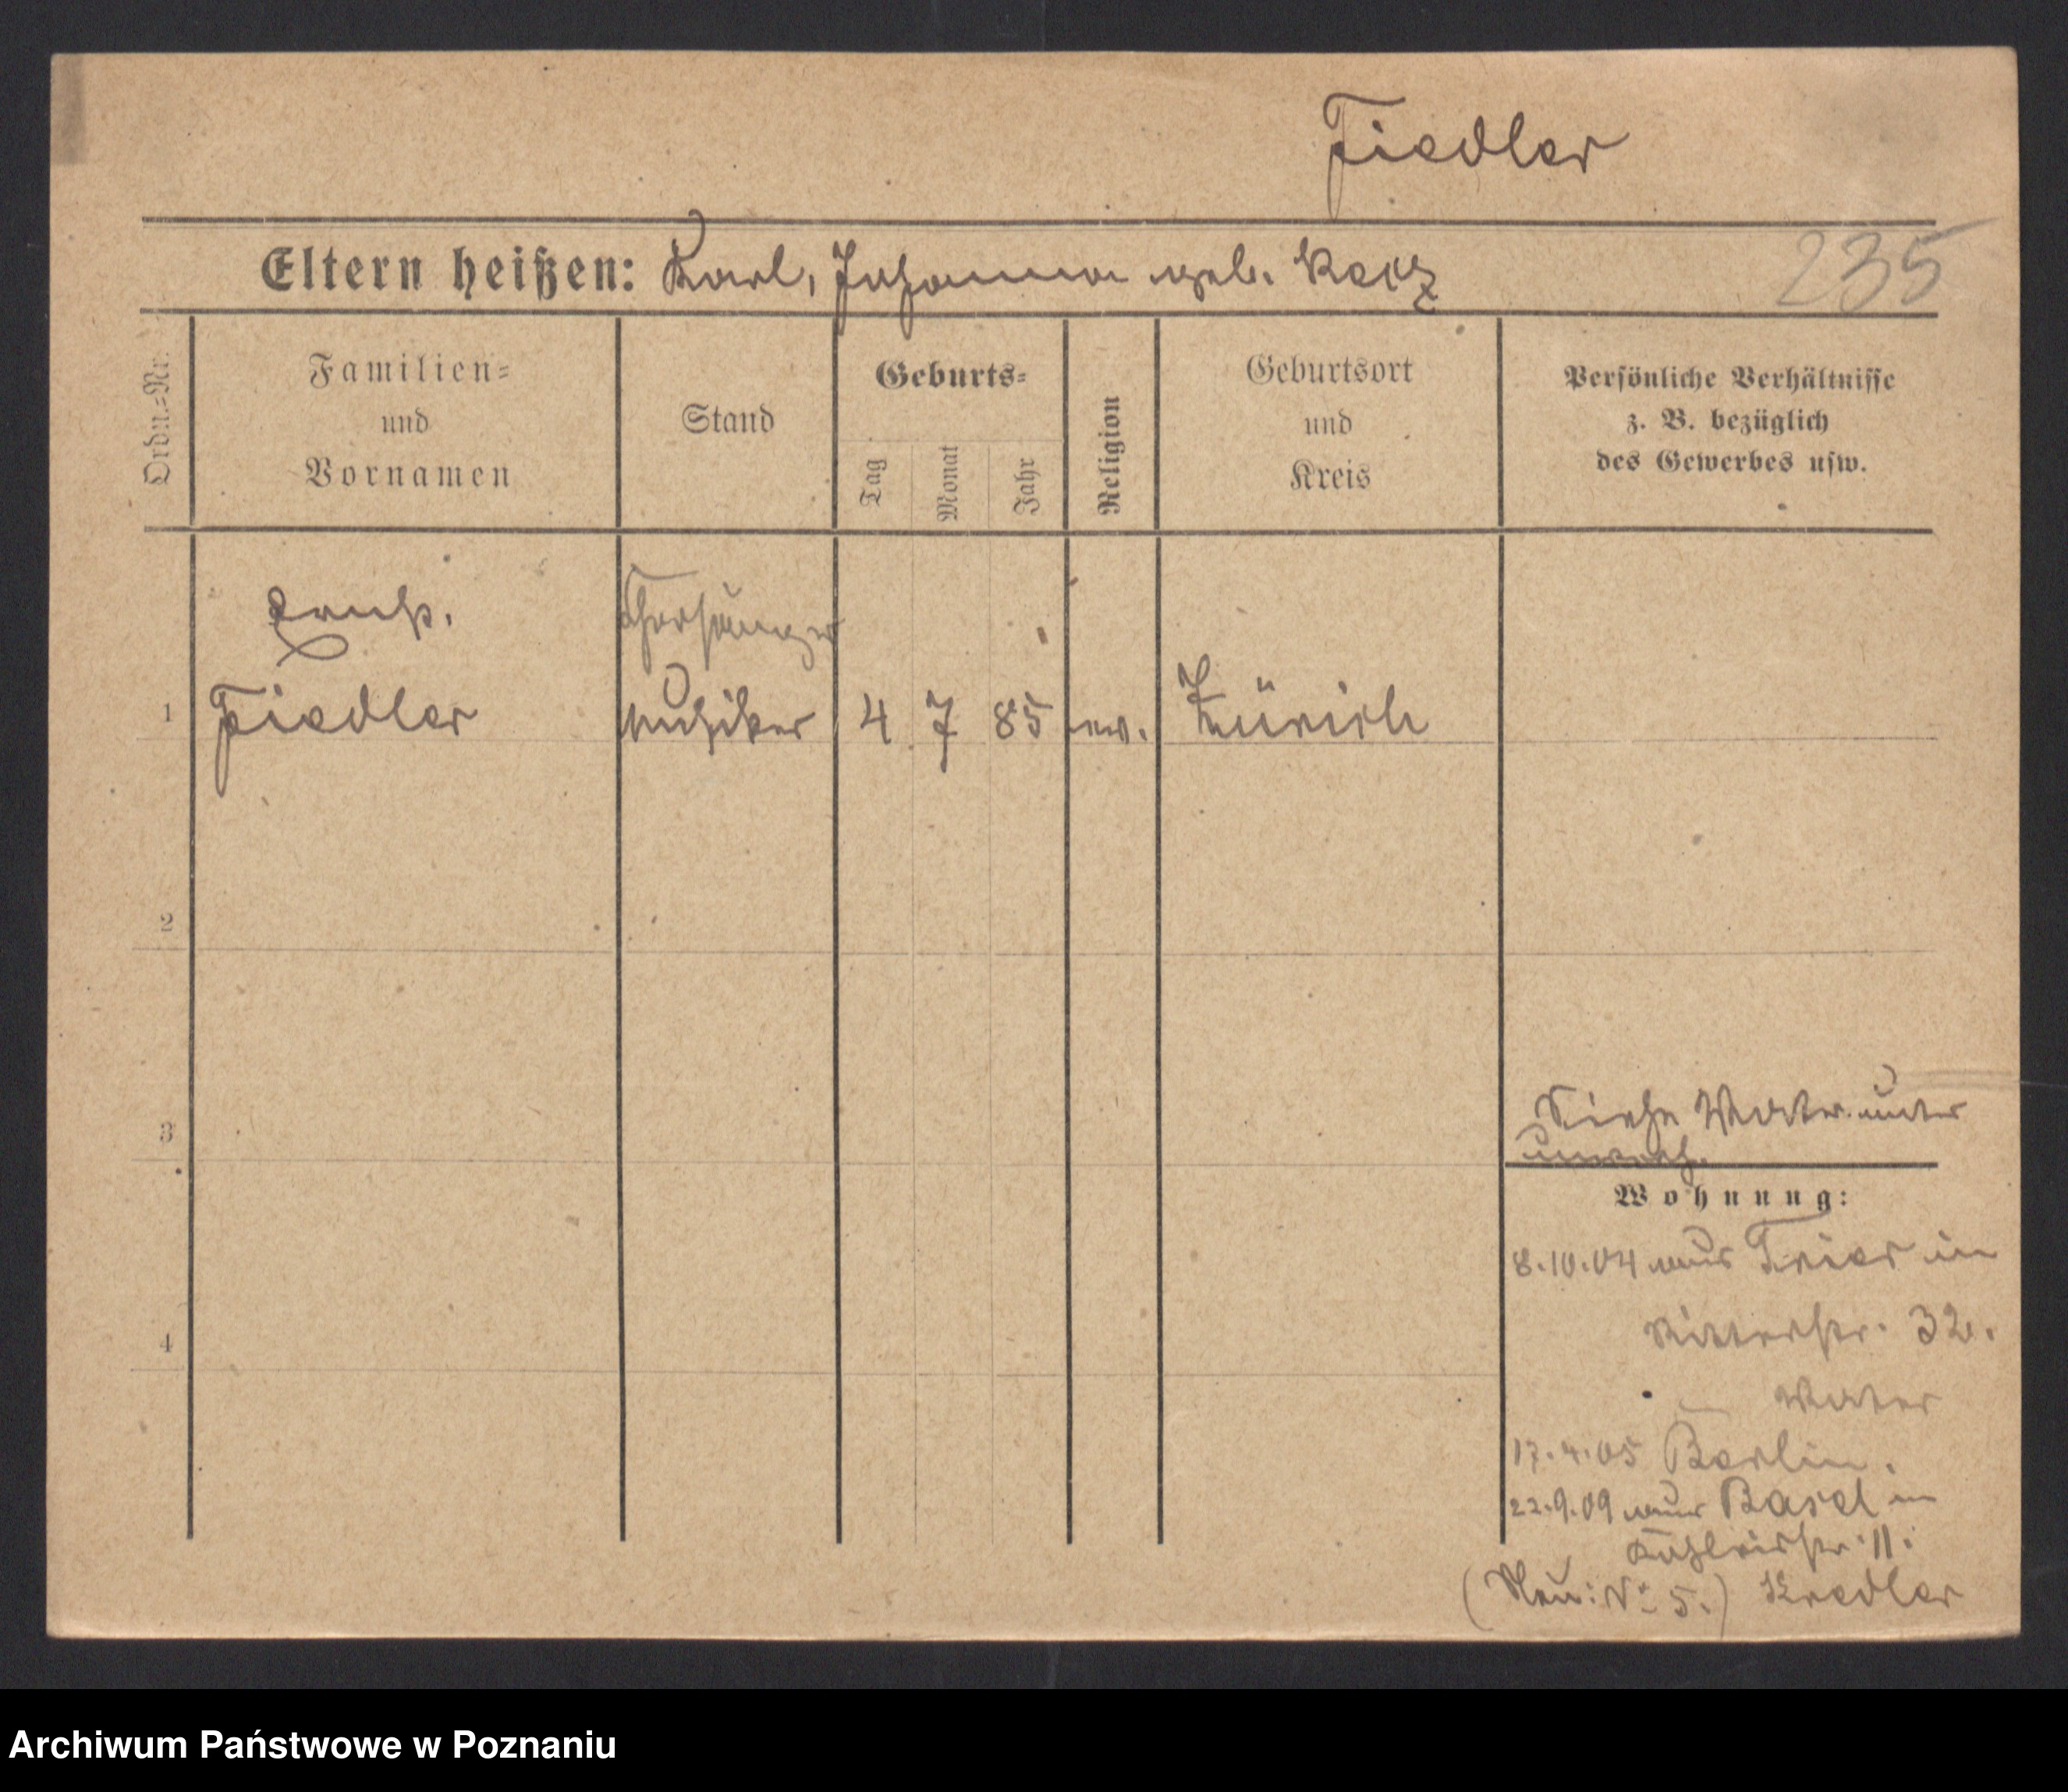 Fiedler
235
Eltern heißen: Karl, Johanna geb.
Ordn.=Nr.
Familien=
und
Vornamen
Stand
Geburts=
Tag
Monat
Jahr
Religion
Geburtsort
und
Kreis
Persönliche Verhältnisse
z. B. bezüglich
des Gewerbes usw.
Chorsänger
1 Fiedler Musiker 4 7 85 ev. Zürich
2
3
Siehe Vater unter
4
Wohnung:
8.10.04 aus Trier in
Ritterstr. 32.
Vater
17.4.05 Berlin.
22.9.09 aus Basel in
11.
(Neu: No 5.)
Archiwum Państwowe w Poznaniu